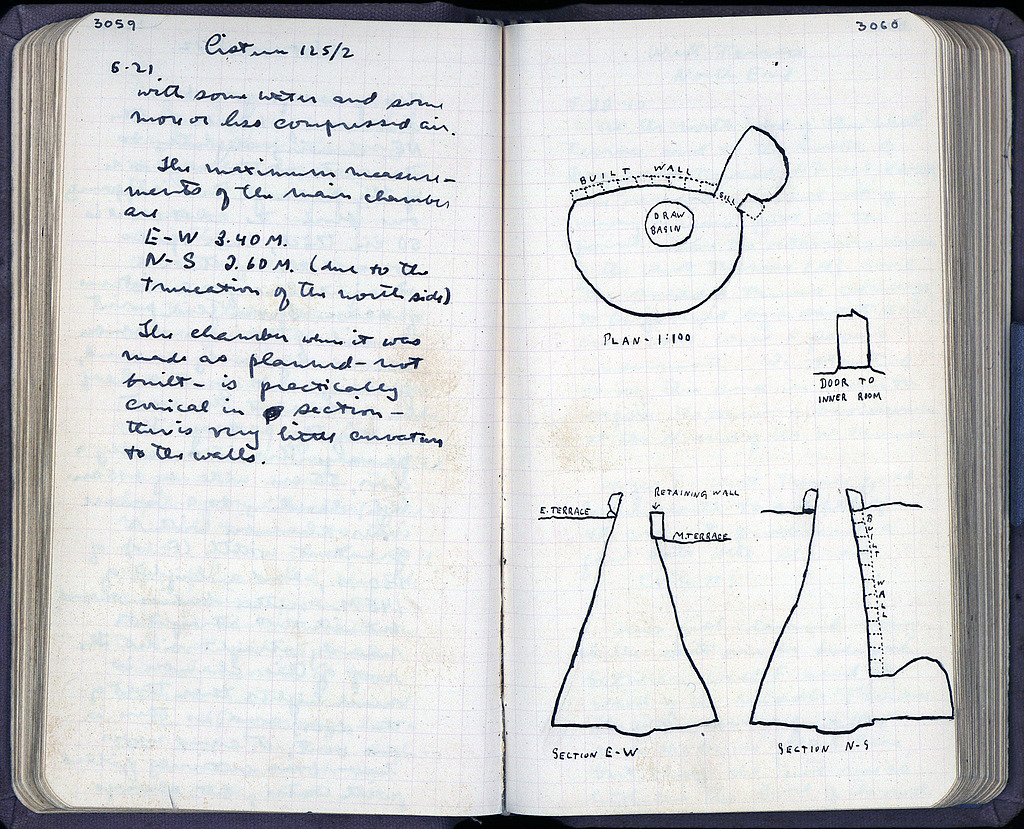 3059
Cistern 125/2
6-21
with some water and some
more or less compressed air.
The maximum measure-
ments of the main chamber
are
E-W 3.40 M.
N-S 2.60 M. (due to the
truncation of the north side)
The chamber when it was
made as planned - not
built - is practically
conical in section -
there is very little curvature
to the walls.
3060
BUILT WALL
SILL
DRAW
BASIN
PLAN - 1:100
DOOR TO
INNER ROOM
RETAINING WALL
E. TERRACE
M. TERRACE
BUILT WALL
SECTION E-W
SECTION N-S